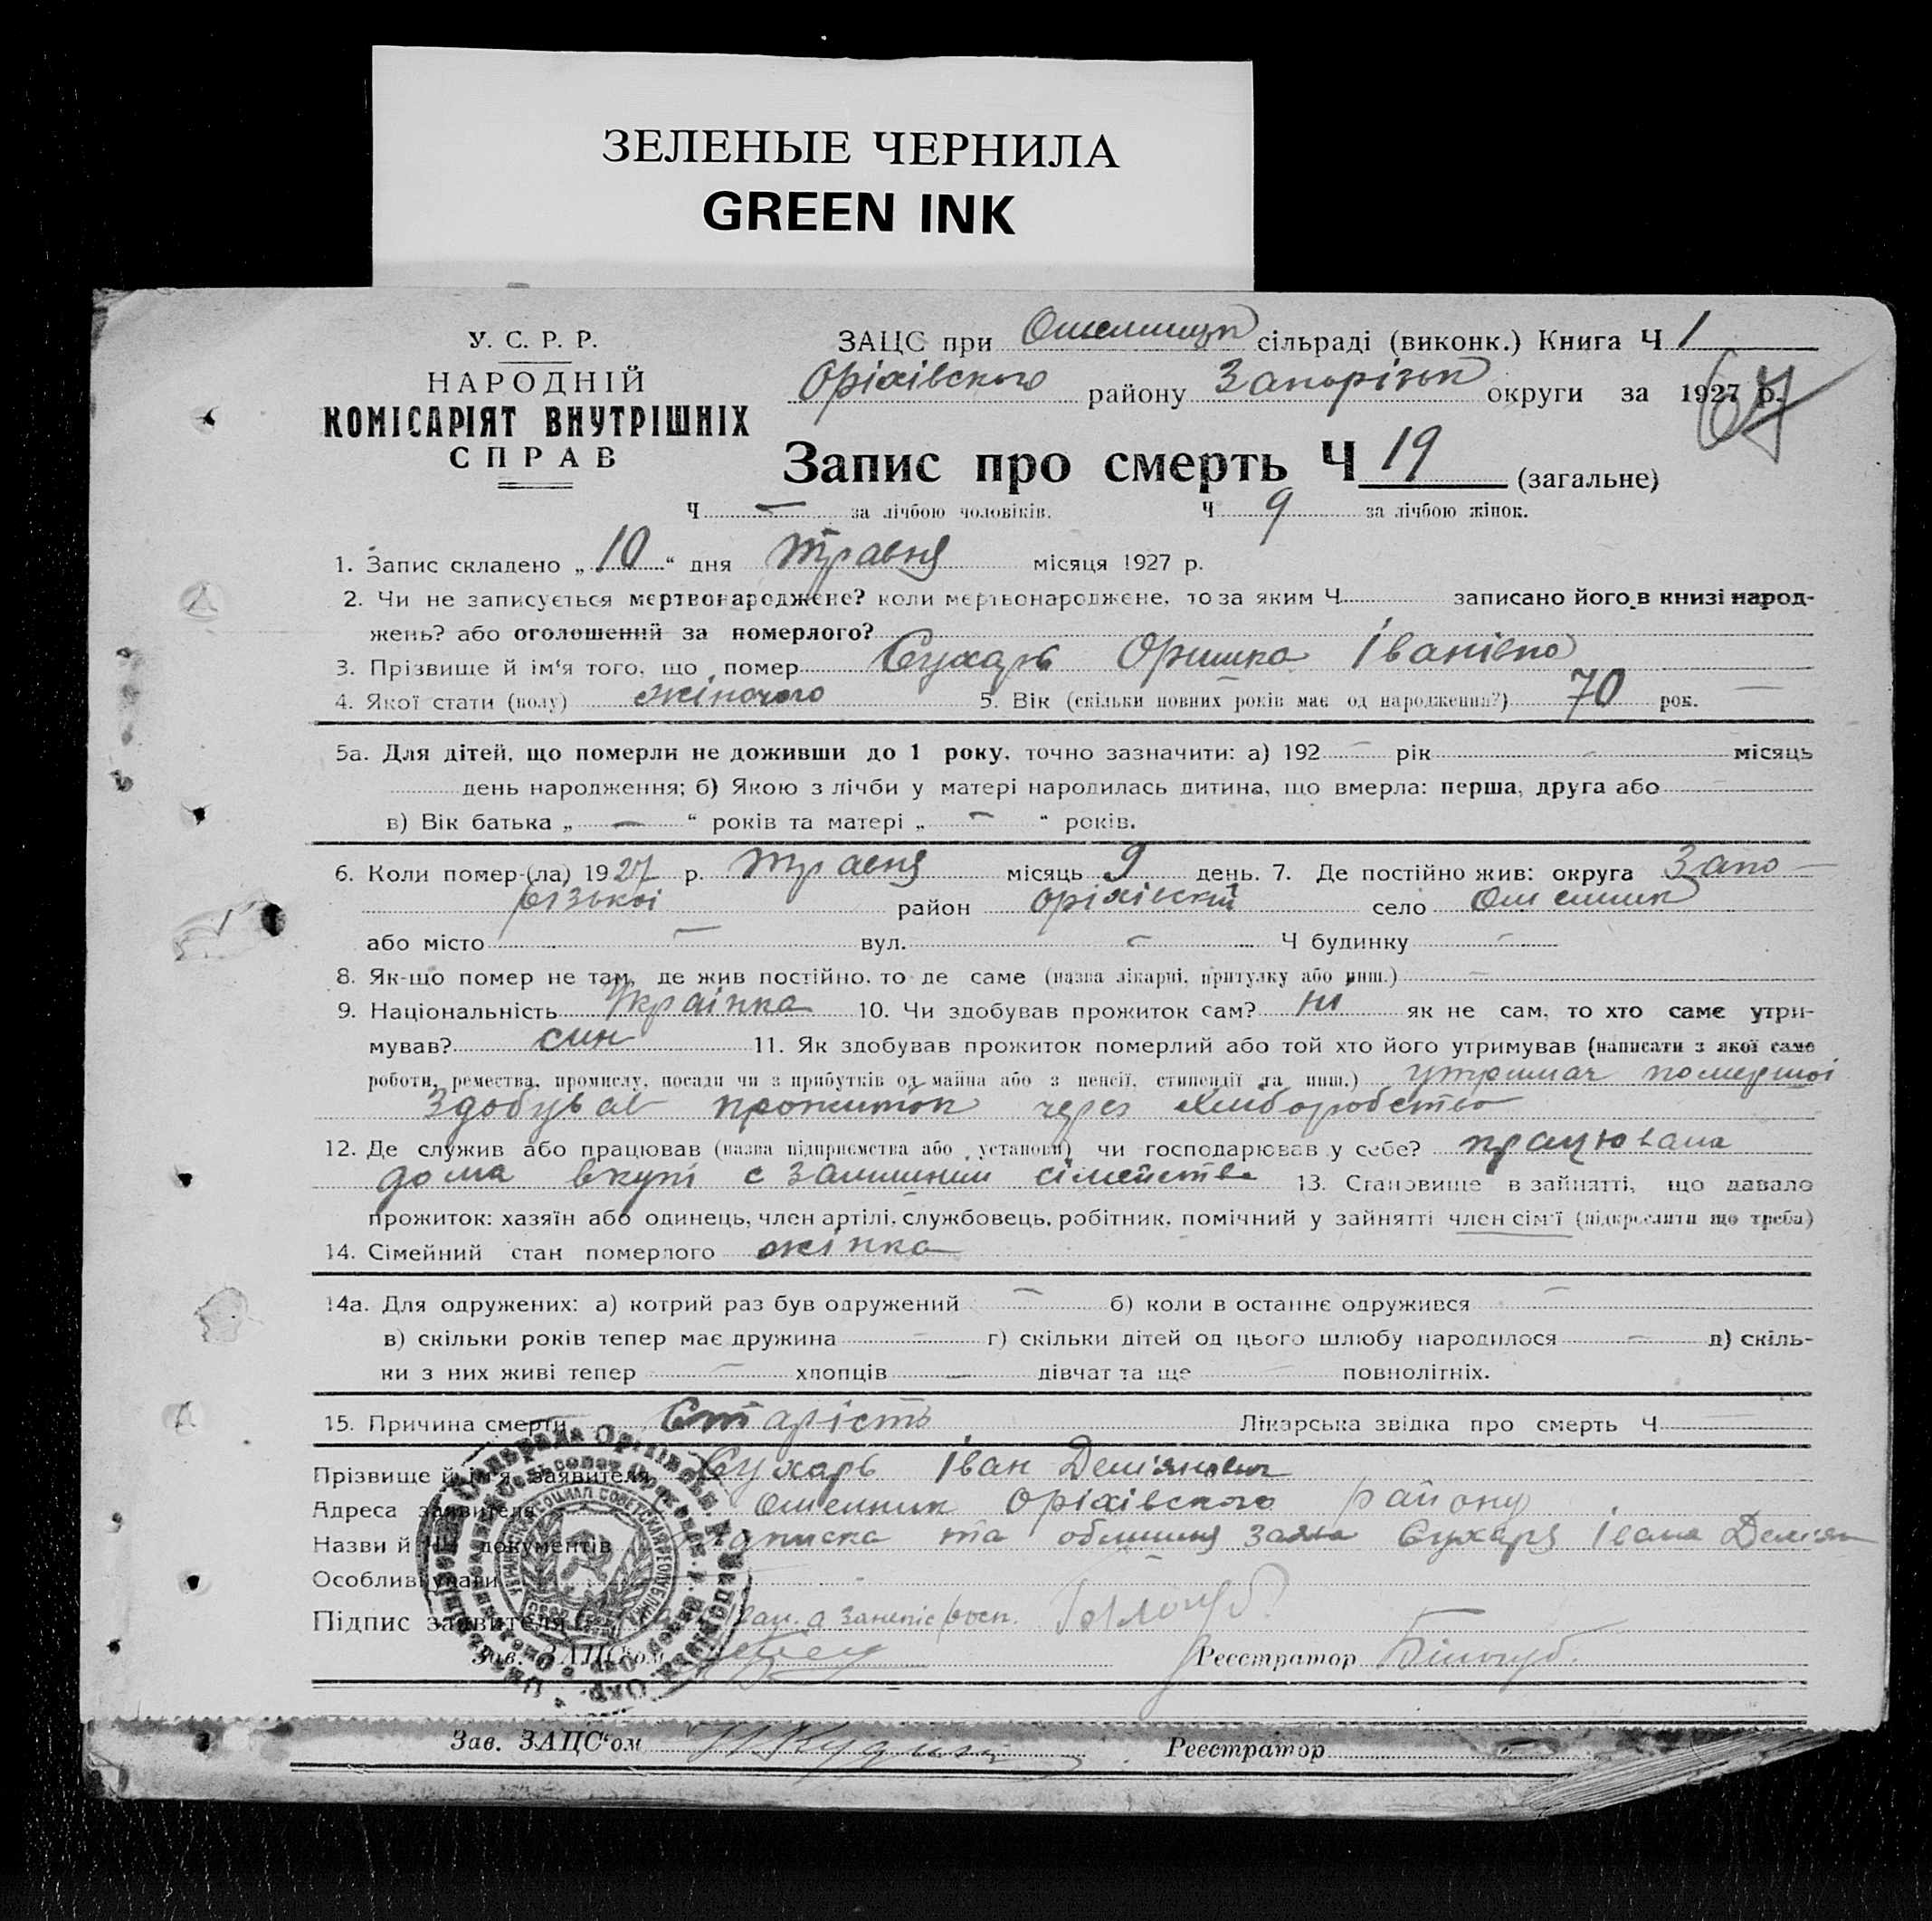 ЗЕЛЕНЫЕ ЧЕРНИЛА
GREEN INK
У. С. Р. Р.
НАРОДНІЙ
КОМІСАРІЯТ ВНУТРІШНІХ
СПРАВ
ЗАЦС при сільраді (виконк.) Книга Ч 1
Оріхівского району Запорізьк округи за 1927 р.
67
Запис про смерть Ч 19 (загальне)
Ч — за лічбою чоловіків. Ч 9 за лічбою жінок.
1. Запис складено „10“ дня травня місяця 1927 р.
2. Чи не записується мертвонароджене? коли мертвонароджене, то за яким Ч записано його в книзі народ-
жень? або оголошений за померлого?
3. Прізвище й ім‘я того, що помер Сухарь Оришка Іванівна
4. Якої стати (полу) жіночого 5. Вік (скільки повних років має од народження?) 70 рок. —
5а. Для дітей, що померли не доживши до 1 року, точно зазначити: а) 192 — рік — місяць
день народження; б) Якою з лічби у матері народилась дитина, що вмерла: перша, друга або —
в) Вік батька „ — “ років та матері „ — “ років.
6. Коли помер-(ла) 1927 р. травня місяць 9 день. 7. Де постійно жив: округа Запо-
різькоі район оріхівский село
або місто — вул. — Ч будинку —
8. Як-що помер не там, де жив постійно, то де саме (назва лікарні, притулку або инш.) —
9. Національність Украінка 10. Чи здобував прожиток сам? ні як не сам, то хто саме утри-
мував? син 11. Як здобував прожиток померлий або той хто його утримував (написати з якої саме
роботи, ремества, промислу, посади чи з прибутків од майна або з пенсії, стипендії та инш.) утримач помершоі
здобував прожиток через хліборобство
12. Де служив або працював (назва підприємства або установи) чи господарював у себе? працювала
дома вкупі с сімейства 13. Становище в зайнятті, що давало
прожиток: хазяїн або одинець, член артілі, службовець, робітник, помічний у зайнятті член сім‘ї (підкреслити що треба)
14. Сімейний стан померлого жінка
14а. Для одружених: а) котрий раз був одружений — б) коли в останнє одружився —
в) скільки років тепер має дружина — г) скільки дітей од цього шлюбу народилося — д) скіль-
ки з них живі тепер — хлопців — дівчат та ще — повнолітніх.
15. Причина смерти Старість Лікарська звідка про смерть Ч —
Прізвище й ім‘я заявителя Сухарь Іван Демʼянович
Адреса заявителя Оріхівского району
Назви й документів та Сухаря Івана Демʼян
Особливі уваги
Підпис заявителя
Зав. ЗАЦС‘ом Реєстратор Білогуб.
Зав. ЗАЦС‘ом Реєстратор —